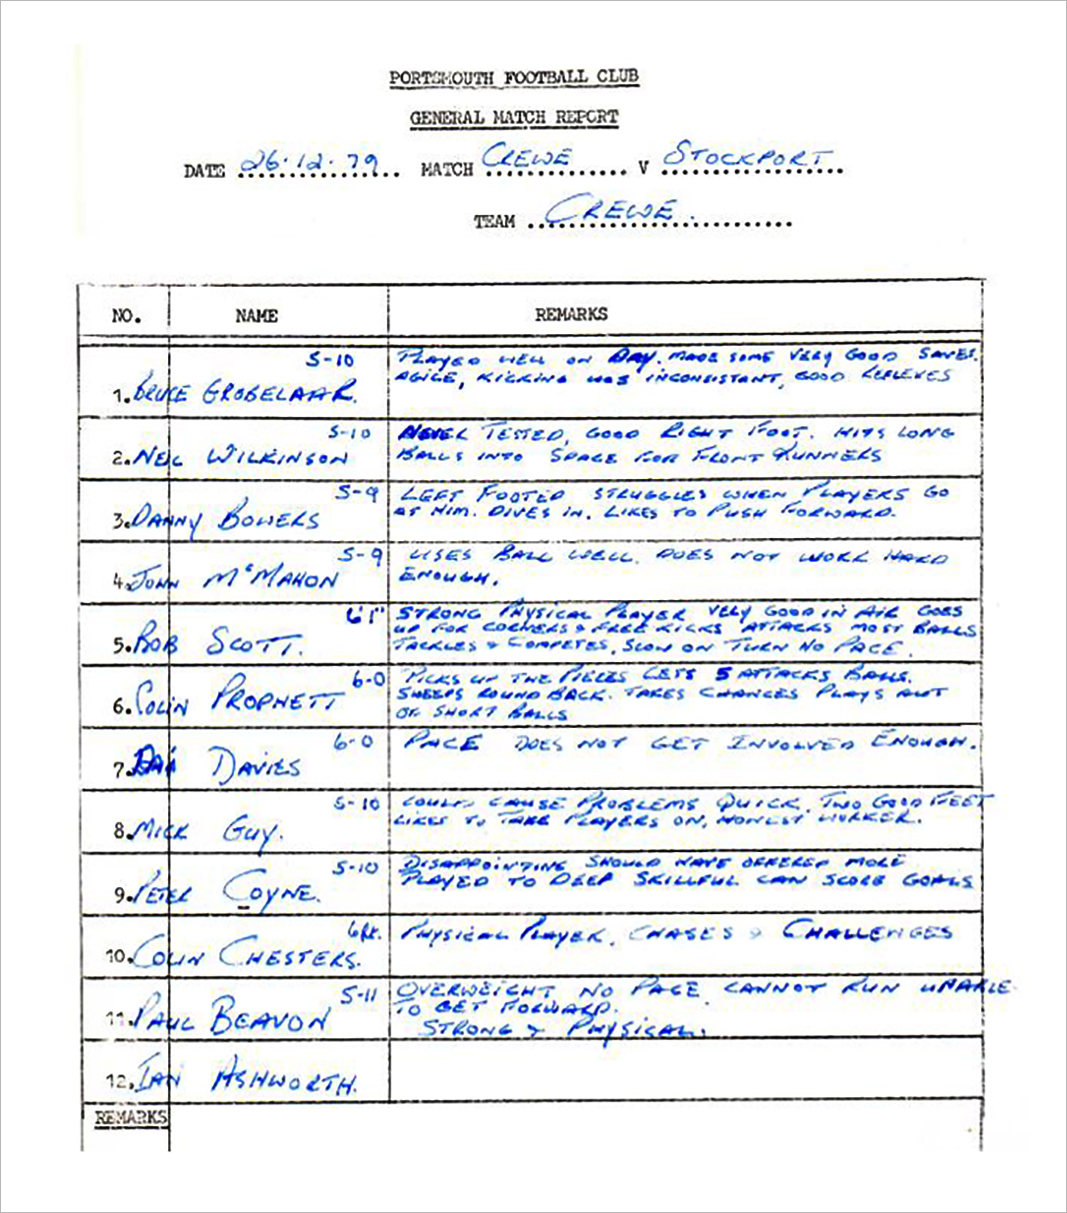 PORTSMOUTH FOOTBALL CLUB
GENERAL MATCH REPORT
DATE 26.12.79 MATCH CREWE V STOCKPORT
TEAM CREWE.
NO. NAME REMARKS
1. BRUCE GROBELAAR. 5-10 PLAYED WELL ON DAY. MADE SOME VERY GOOD SAVES.
AGILE, KICKING WAS INCONSISTANT, GOOD REFLEXES
2. NEIL WILKINSON 5-10 NEVER TESTED, GOOD RIGHT FOOT. HITS LONG
BALLS INTO SPACE FOR FRONT RUNNERS
3. DANNY BOWERS 5-9 LEFT FOOTED STRUGGLES WHEN PLAYERS GO
AT HIM. DIVES IN. LIKES TO PUSH FORWARD.
4. JOHN McMAHON 5-9 USES BALL WELL. DOES NOT WORK HARD
ENOUGH.
5. BOB SCOTT. 6'1" STRONG PHYSICAL PLAYER VERY GOOD IN AIR GOES
UP FOR CORNERS & FREE KICKS ATTACKS MOST BALLS
TACKLES & COMPETES, SLOW ON TURN NO PACE.
6. COLIN PROPHETT 6-0 PICKS UP THE PIECES LETS 5 ATTACKS BALLS.
SWEEPS ROUND BACK. TAKES CHANCES PLAYS OUT
OF SHORT BALLS
7. DAI DAVIES 6-0 PACE DOES NOT GET INVOLVED ENOUGH.
8. MICK GUY. 5-10 COULD CAUSE PROBLEMS QUICK. TWO GOOD FEET
LIKES TO TAKE PLAYERS ON, HONEST WORKER.
9. PETER COYNE. 5-10 DISAPPOINTING SHOULD HAVE OFFERED MORE
PLAYED TO DEEP SKILLFUL CAN SCORE GOALS
10. COLIN CHESTERS. 6ft. PHYSICAL PLAYER, CHASES & CHALLENGES
11. PAUL BEAVON 5-11 OVERWEIGHT NO PACE CANNOT RUN UNABLE
TO GET FORWARD.
STRONG & PHYSICAL.
12. IAN ASHWORTH.
REMARKS